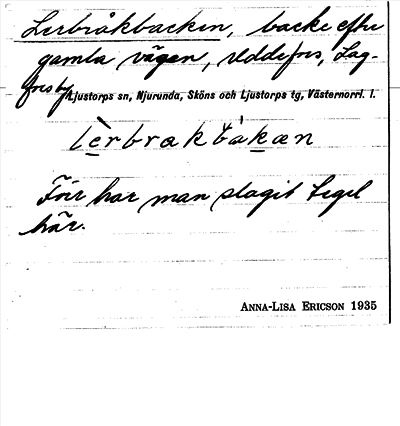 Lerbråkbacken, backe efter
gamla vägen, Uddefors, Lag-
forsby
Ljustorps sn, Njurunda, Sköns och Ljustorps tg, Västernorrl. l.
lèrbrakbàkæn
Förr har man slagit tegel
här.
ANNA-LISA ERICSON 1935